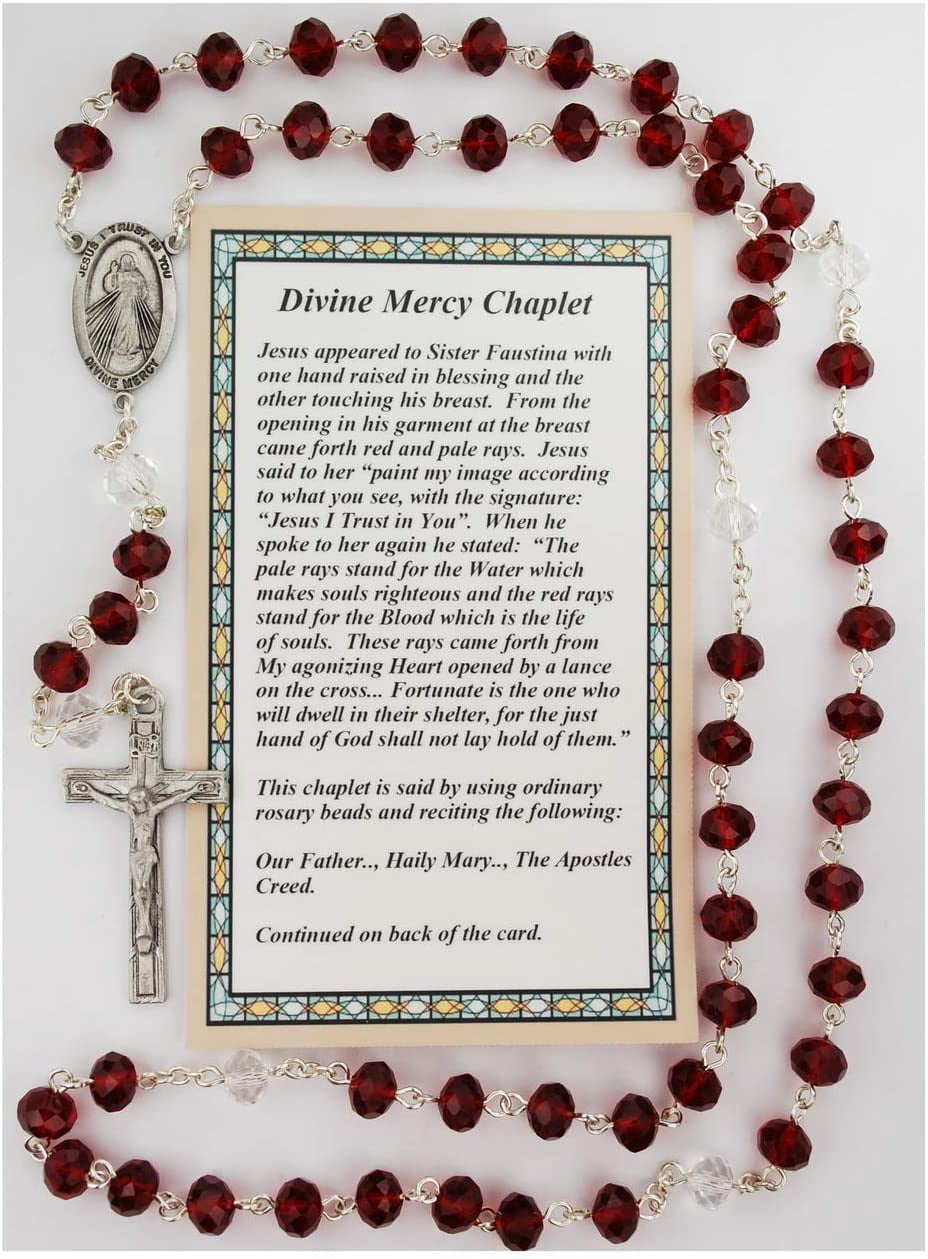 JESUS I TRUST IN YOU
DIVINE MERCY
INRI
Divine Mercy Chaplet
Jesus appeared to Sister Faustina with
one hand raised in blessing and the
other touching his breast. From the
opening in his garment at the breast
came forth red and pale rays. Jesus
said to her “paint my image according
to what you see, with the signature:
“Jesus I Trust in You”. When he
spoke to her again he stated: “The
pale rays stand for the Water which
makes souls righteous and the red rays
stand for the Blood which is the life
of souls. These rays came forth from
My agonizing Heart opened by a lance
on the cross... Fortunate is the one who
will dwell in their shelter, for the just
hand of God shall not lay hold of them.”
This chaplet is said by using ordinary
rosary beads and reciting the following:
Our Father.., Haily Mary.., The Apostles
Creed.
Continued on back of the card.